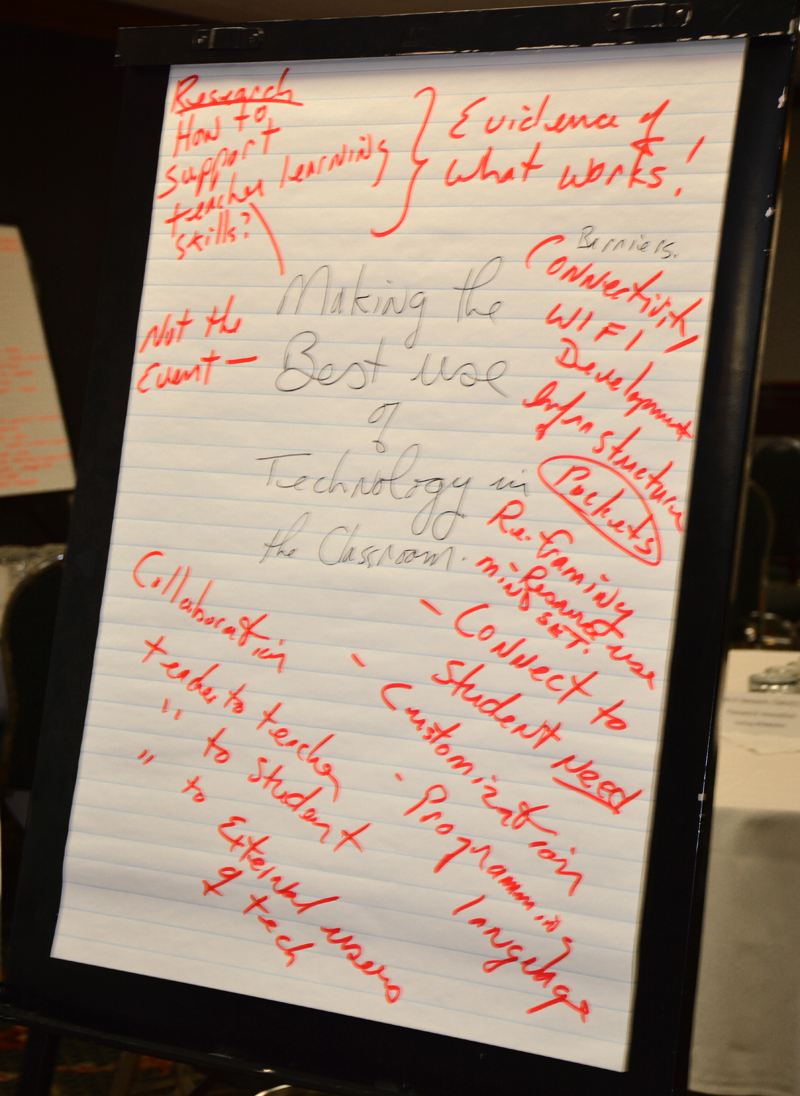 Research
How to
support
teacher learning
skills?
Evidence of
what works!
Making the
Best use
of
Technology in
the Classroom.
Not the
Event —
Barriers.
Connectivity
WIFI
Development
of
Infrastructure
Pockets
Re-framing
- Resource use
mindset.
- Connect to
Student Need
- Customization
- Programming
language
Collaboration
teacher to teacher
" to student
" to External users
of tech